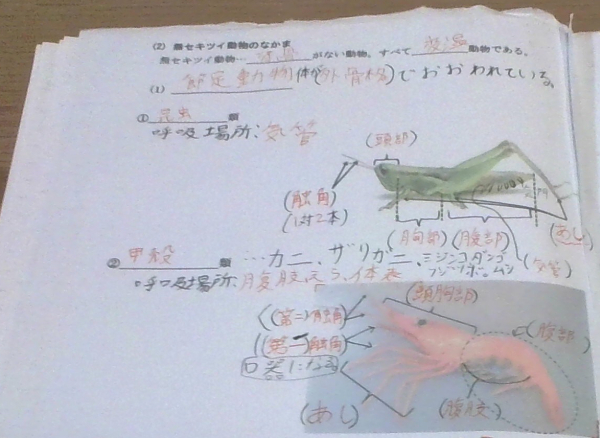 (2) 無セキツイ動物のなかま
無セキツイ動物… 背骨 がない動物、すべて 変温 動物である。
(1) 節足動物 体が(外骨格)でおおわれている。
① 昆虫 類
呼吸場所:気管
(頭部)
(触角)
(1対2本)
(胸部)(腹部)
(あし)
(気管)
② 甲殻 類 …カニ、ザリガニ、ミジンコ、ダンゴムシ
フジツボ。
呼吸場所:
(頭胸部)
(第二)触角
(第一)触角
口器になる
(腹部)
(あし)
(腹肢)